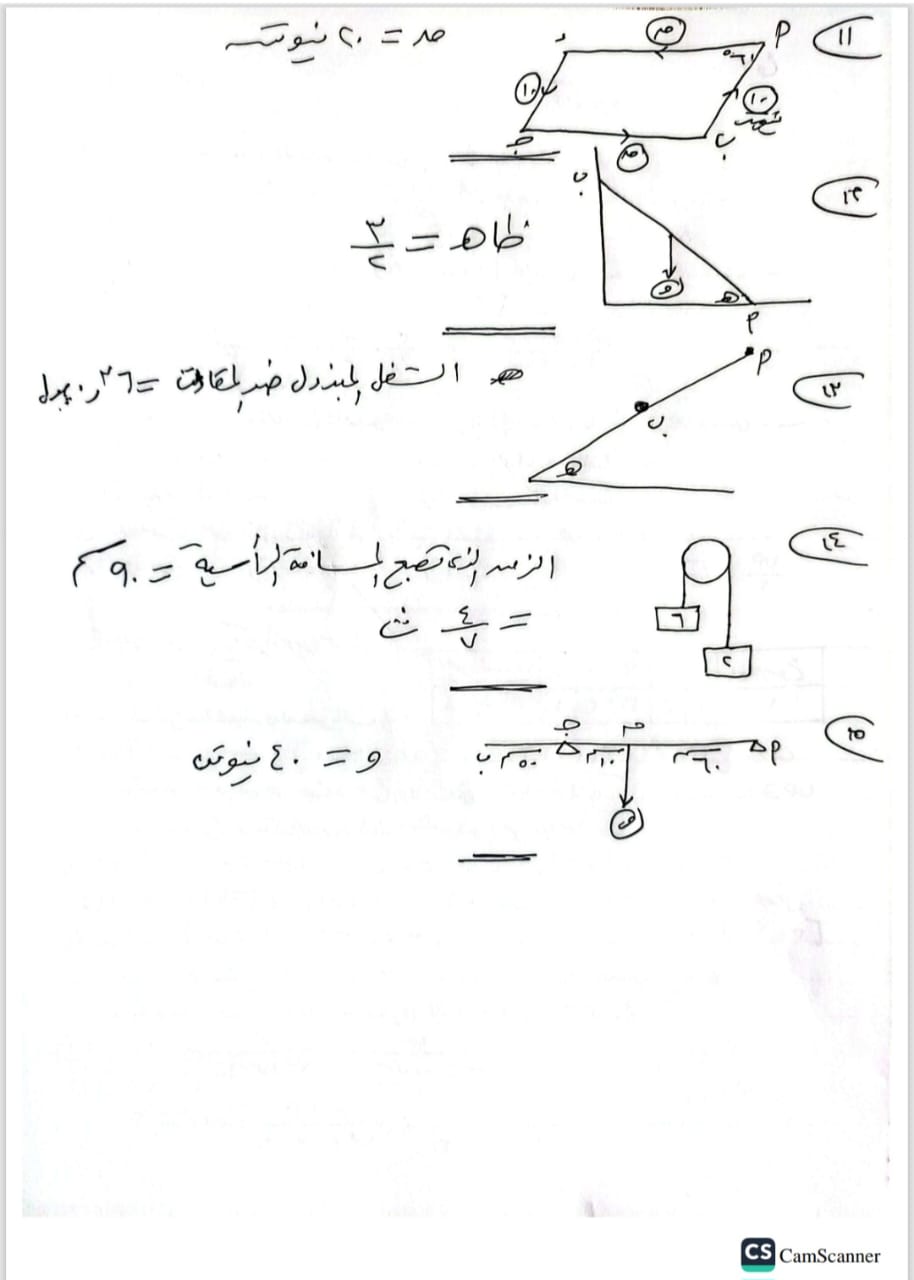 ١١
م
٦٠°
١٠
١٠
ب
جـ
د
م
ق = ٢٠ نيوتن
١٢
ب
و
هـ
م
ظا هـ = ٣/٢
١٣
م
ب
هـ
الشغل المبذول ضد المقاومة = ٢٦ر٠ جول
١٤
٦
٢
الزمن الذى تصبح المسافة الرأسية = ٩٠ سم
= ٤/٧ ث
١٥
م ٦٠ سم م ١٠ سم جـ ٥٠ سم ب
و
و = ٤٠ نيوتن
CS CamScanner